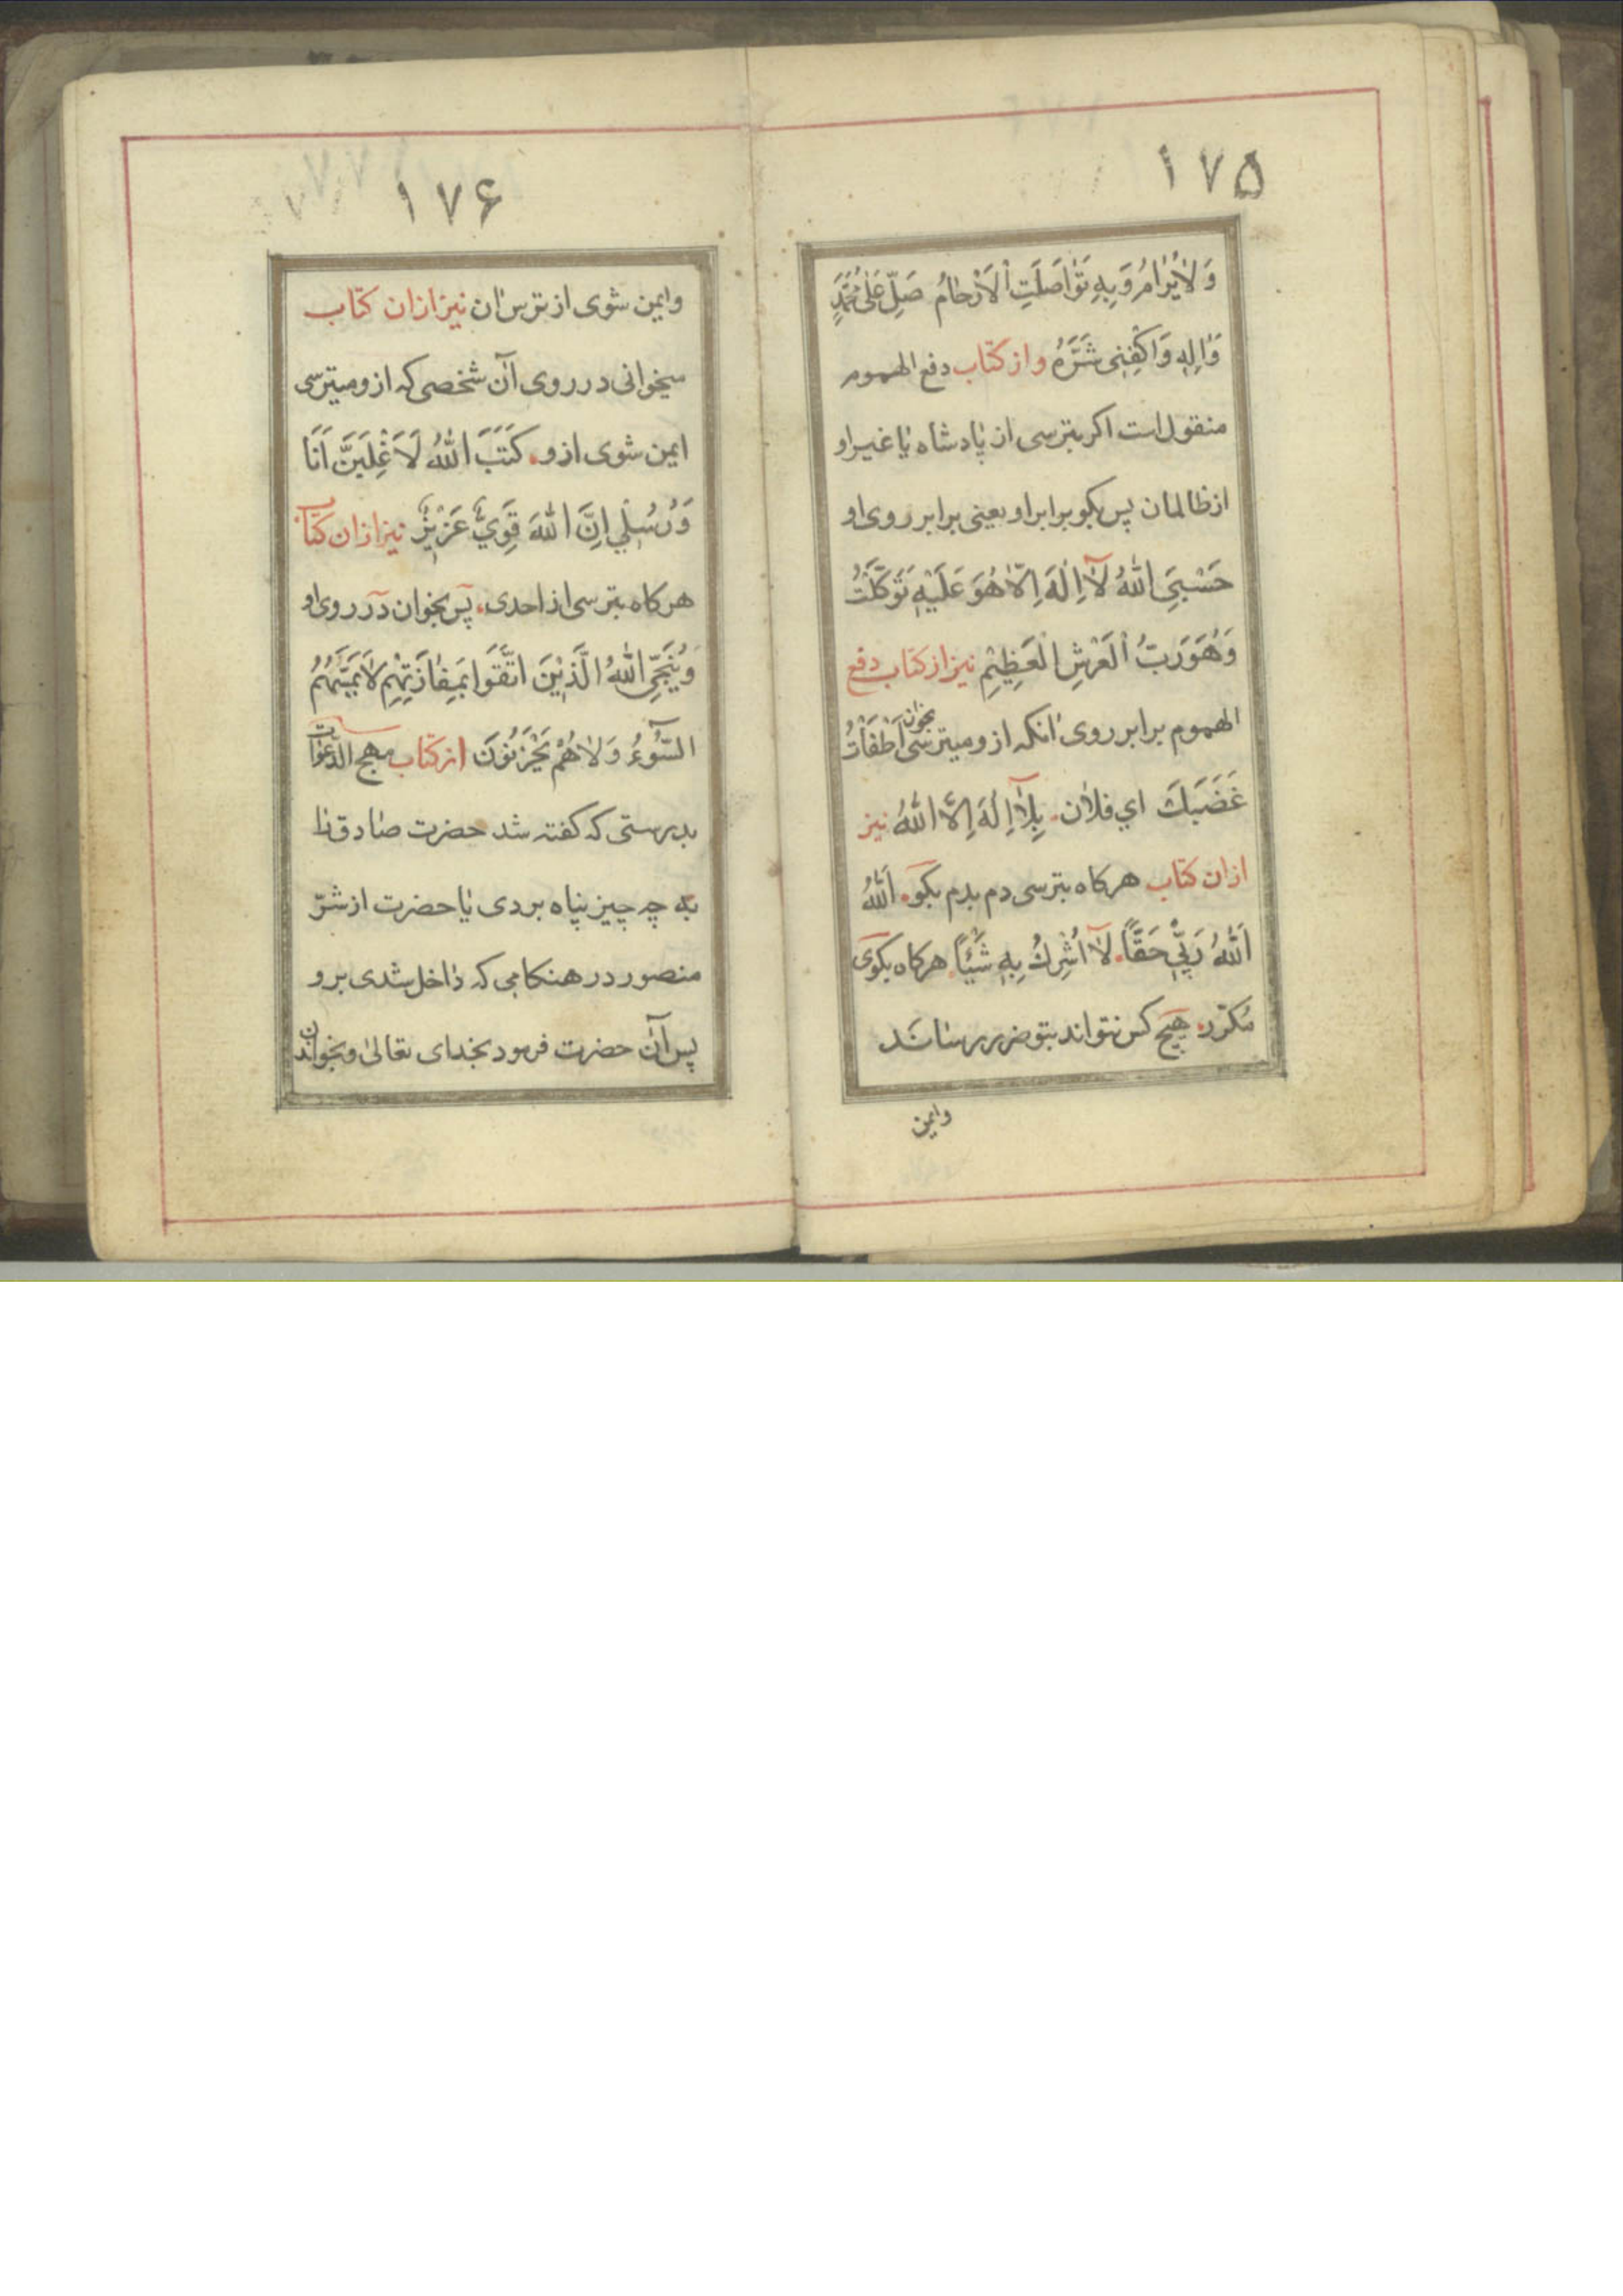 ۱۷۵
وَلٰا يُرٰامُ وَبِهِ تَوٰاصَلَتِ اْلاَرْحٰامُ صَلِّ عَلٰى مُحَمَّدٍ
وَاٰلِهِ وَاكْفِنِى شَرَّهُ واز كتاب دفع الهموم
منقول است اكر بترسى از پادشاه يا غير او
از ظالمان پس بكو برابر او يعنى برابر روى او
حَسْبِىَ اللّٰهُ لآ اِلٰهَ اِلّا هُوَ عَلَيْهِ تَوَكَّلْتُ
وَهُوَ رَبُّ الْعَرْشِ الْعَظِيْمِ نيز از كتاب دفع
الهموم برابر روى انكه ازو ميترسى بخوان اَطْفَاْتُ
غَضَبَكَ اي فلان بِلآ اِلٰهَ اِلَّا اللّٰهُ نيز
ازان كتاب هركاه بترسى دم بدم بكو اَللّٰهُ
اَللّٰهُ رَبِّي حَقًّا لآ اُشْرِكُ بِهِ شَيْئًا هركاه بكوى
مكرّر هيچ كس نتواند بتو ضرر رساند
وايمن
۱۷۶
وايمن شوى از ترس ان نيز ازان كتاب
ميخوانى در روى آن شخصى كه ازو ميترسى
ايمن شوى ازو كَتَبَ اللّٰهُ لَاَغْلِبَنَّ اَنَا
وَرُسُلِي اِنَّ اللّٰهَ قَوِيٌّ عَزِيْزٌ نيز ازان كتاب
هركاه بترسى از احدى پس بخوان در روى او
وَيُنَجِّى اللّٰهُ الَّذِيْنَ اتَّقَوا بِمَفٰازَتِهِمْ لٰا يَمَسُّهُمُ
السُّوٓءُ وَلٰا هُمْ يَحْزَنُوْنَ از كتاب مهج الدّعوات
بدرستى كه كفته شد حضرت صادق را
به چه چيز پناه بردى يا حضرت از شرّ
منصور در هنكامى كه داخل شدى برو
پس آن حضرت فرمود بخداى تعالىٰ وبخواندن